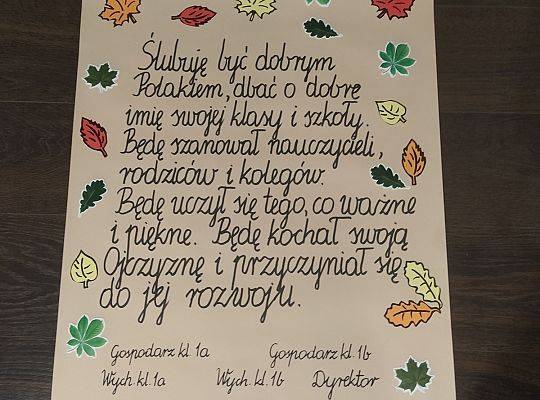 Ślubuję być dobrym
Polakiem, dbać o dobrę
imię swojej klasy i szkoły.
Będę szanował nauczycieli,
rodziców i kolegów.
Będę uczył się tego, co ważne
i piękne. Będę kochał swoją
Ojczyznę i przyczyniał się
do jej rozwoju.
Gospodarz kl. 1a Gospodarz kl. 1b
Wych. kl. 1a Wych. kl. 1b Dyrektor